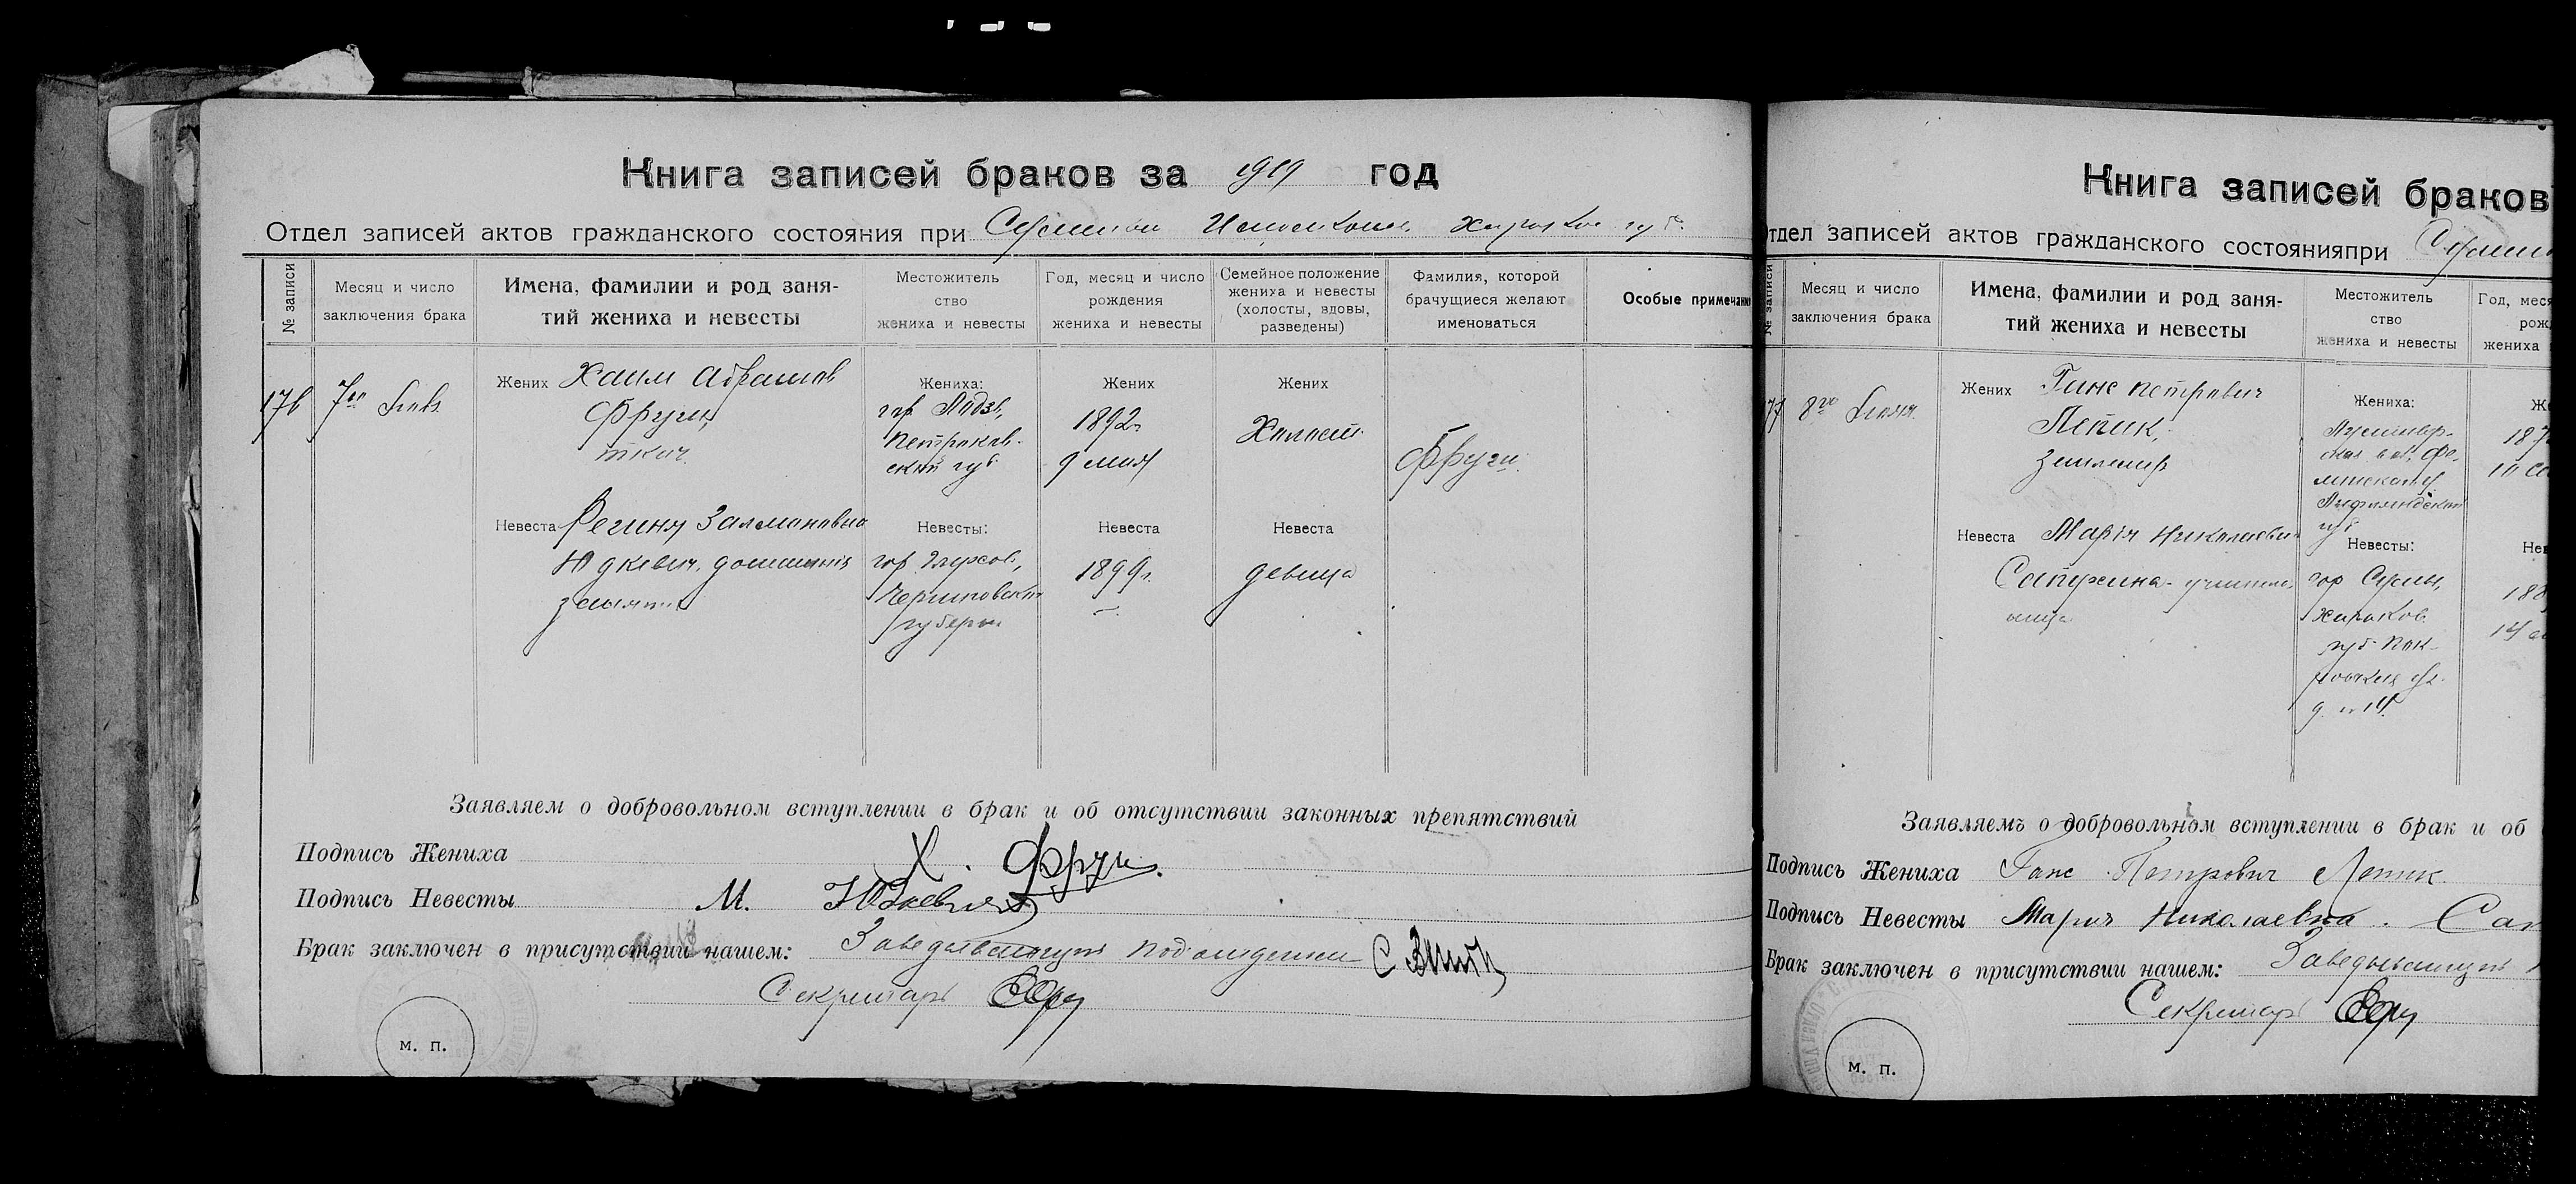 Книга записей браков за 1919 год
Отдел записей актов гражданского состояния при Сумском Исполкоме Харьков губ.
№ записи
Месяц и число
заключения брака
Имена, фамилии и род заня-
тий жениха и невесты
Местожитель
ство
жениха и невесты
Год, месяц и число
рождения
жениха и невесты
Семейное положение
жениха и невесты
(холосты, вдовы,
разведены)
Фамилия, которой
брачущиеся желают
именоваться
Особые примечани
176
7го
Жених Хаим Абрамов
Фруги,
ткач.
Жениха:
гор. Лодзь,
Петроков-
ской губ.
Жених
1892г.
9 мая
Жених
Холост.
Фруги.
Невеста Регина Залмановна
Юдкевич, домашнія
занятія
Невесты:
гор. Глухов,
Черниговской
губерни
Невеста
1899г.
Невеста
девица
Заявляем о добровольном вступлении в брак и об отсутствии законных препятствий
Подпись Жениха Х. Фруги.
Подпись Невесты М. Юдкевич
Брак заключен в присутствии нашем: Заведывающий подотделом
Секретарь
м. п.
Книга записей браков
тдел записей актов гражданского состоянияпри
№ записи
Месяц и число
заключения брака
Имена, фамилии и род заня-
тий жениха и невесты
Местожитель
ство
жениха и невесты
Год, меся
рож
жениха
77
8го
Жених Ганс Петрович
Лепик,
землемер
Жениха:
Лифляндской
губ.
Невеста Мария Николаевна
Сапухина - учитель-
ница
Невесты:
гор. Сумы,
Харьков.
губ. Пок-
ровская ул.
д. № 14.
Заявляемъ о добровольном вступлении в брак и об
Подпись Жениха Ганс Петрович Лепик.
Подпись Невесты Мария Николаевна. Сап
Брак заключен в присутствии нашем: Заведывающий
Секретарь
м. п.